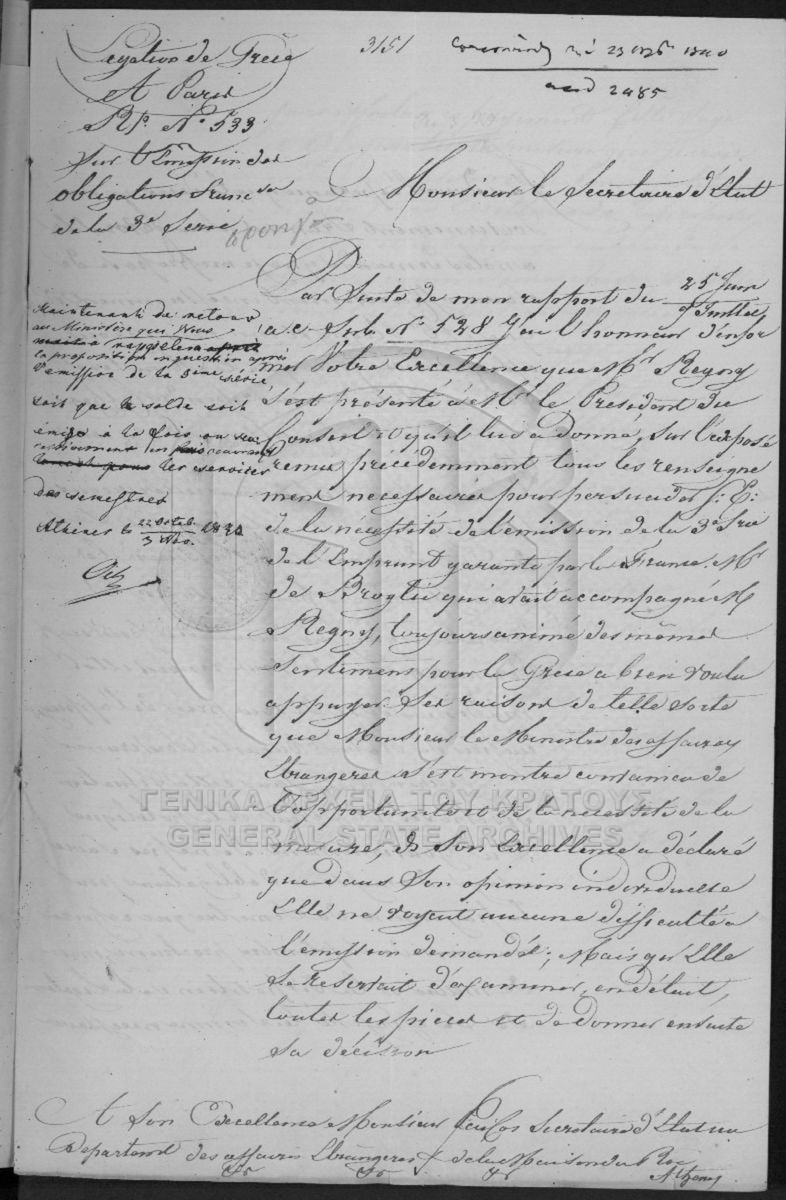 Legation de Grèce
A Paris
Rp. N° 533
Sur l'Emission des
obligations franc ses
de la 3e Serie
3151
23
2485
Monsieur le Secretaire d'Etat
Par suite de mon rapport du 25 Juin / 7 Juillet
a. c. sub. N° 528 J'ai l'honneur d'infor
mer Votre Excellence que Mr Regny
s'est présenté à Mr le President du
Conseil et qu'il lui a donné, sur l'exposé
remis précédemment tous les renseigne
ment necessaires pour persuader S: E:
de la nécessité de l'émission de la 3e Serie
de l'Emprunt garantie par la France. Mr
de Broglie qui avait accompagné M
Regny, toujours animé des mêmes
sentimens pour la Grèce a bien voulu
appuyer ses raisons de telle sorte
que Monsieur le Ministre des affaires
Etrangeres s'est montré convaincu de
l'opportunité et de la necessité de la
mesure, & Son Excellence a déclaré
que dans Son opinion individuelle
Elle ne voyait aucune difficulté à
l'émission demandée; Mais qu'Elle
se reservait d'examiner, en détail,
toutes les pieces et de donner ensuite
sa décision
Maintenant de retour
au Ministère qui Nous
la proposition en question après
l'emission de la 3ème série,
soit que le solde soit
émise à la fois ou suc
cessivement en couvrant
les services
des semestres
Athènes le 22 Octob. / 3 Nov. 1840
A Son Excellence Monsieur Païcos Secretaire d'Etat au
Departemt des affaires Etrangeres & de la Maison du Roi
&a &a &a Athenes
ΓΕΝΙΚΑ ΑΡΧΕΙΑ ΤΟΥ ΚΡΑΤΟΥΣ
GENERAL STATE ARCHIVES